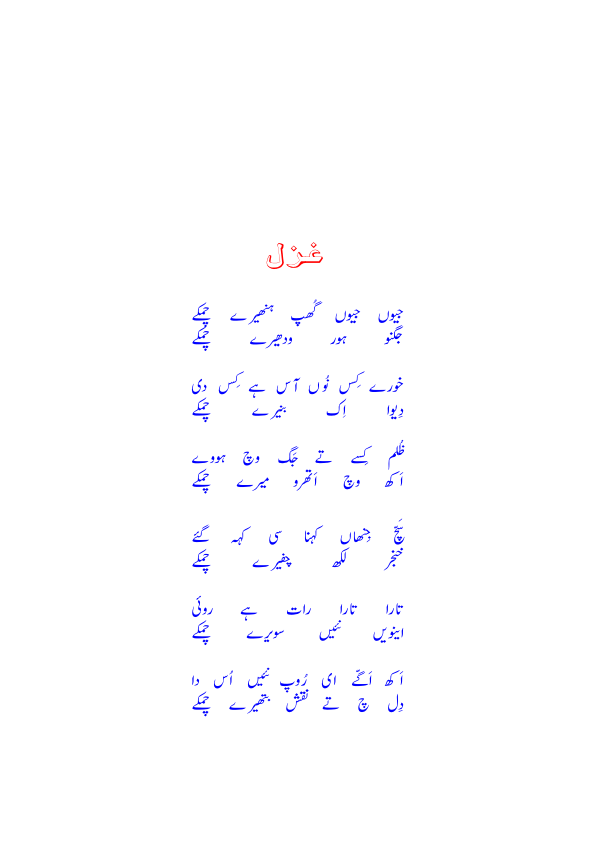 غزل
جیوں جیوں گُھپ ہنھیرے چمکے
جگنو ہور ودھیرے چمکے
خورے کِس نُوں آس ہے کِس دی
دِیوا اِک بنیرے چمکے
ظُلم کِسے تے جَگ وچ ہووے
اَکھ وچ اَتھرو میرے چمکے
سَچّ جِنھاں کہنا سی کہہ گئے
خنجر لکھ چفیرے چمکے
تارا تارا رات ہے روئی
اینویں نئیں سویرے چمکے
اَکھ اَگّے ای رُوپ نئیں اُس دا
دِل چ تے نقش بتھیرے چمکے